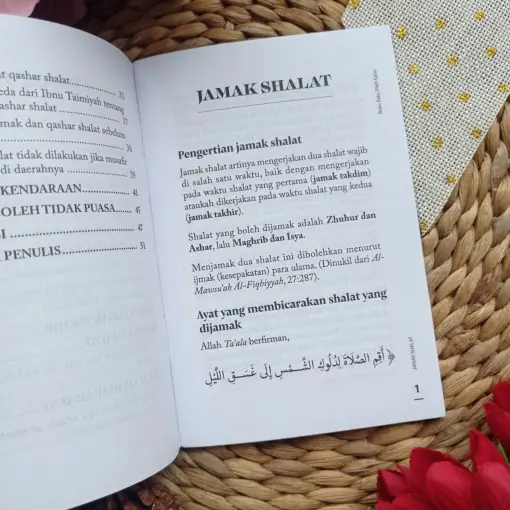 qashar shalat
35
eda dari Ibnu Taimiyah tentang
qashar shalat
37
mak dan qashar shalat sebelum
39
lat tidak dilakukan jika musafir
di daerahnya
39
KENDARAAN
41
OLEH TIDAK PUASA
45
47
PENULIS
51
JAMAK SHALAT
Pengertian jamak shalat
Jamak shalat artinya mengerjakan dua shalat wajib
di salah satu waktu, baik dengan mengerjakan
pada waktu shalat yang pertama (jamak takdim)
ataukah dikerjakan pada waktu shalat yang kedua
(jamak takhir).
Shalat yang boleh dijamak adalah Zhuhur dan
Ashar, lalu Maghrib dan Isya.
Menjamak dua shalat ini dibolehkan menurut
ijmak (kesepakatan) para ulama. (Dinukil dari Al-
Mawsu'ah Al-Fiqhiyyah, 27:287).
Ayat yang membicarakan shalat yang
dijamak
Allah Ta'ala berfirman,
﴿ أَقِمِ الصَّلَاةَ لِدُلُوكِ الشَّمْسِ إِلَى غَسَقِ اللَّيْلِ
JAMAK SHALAT
1